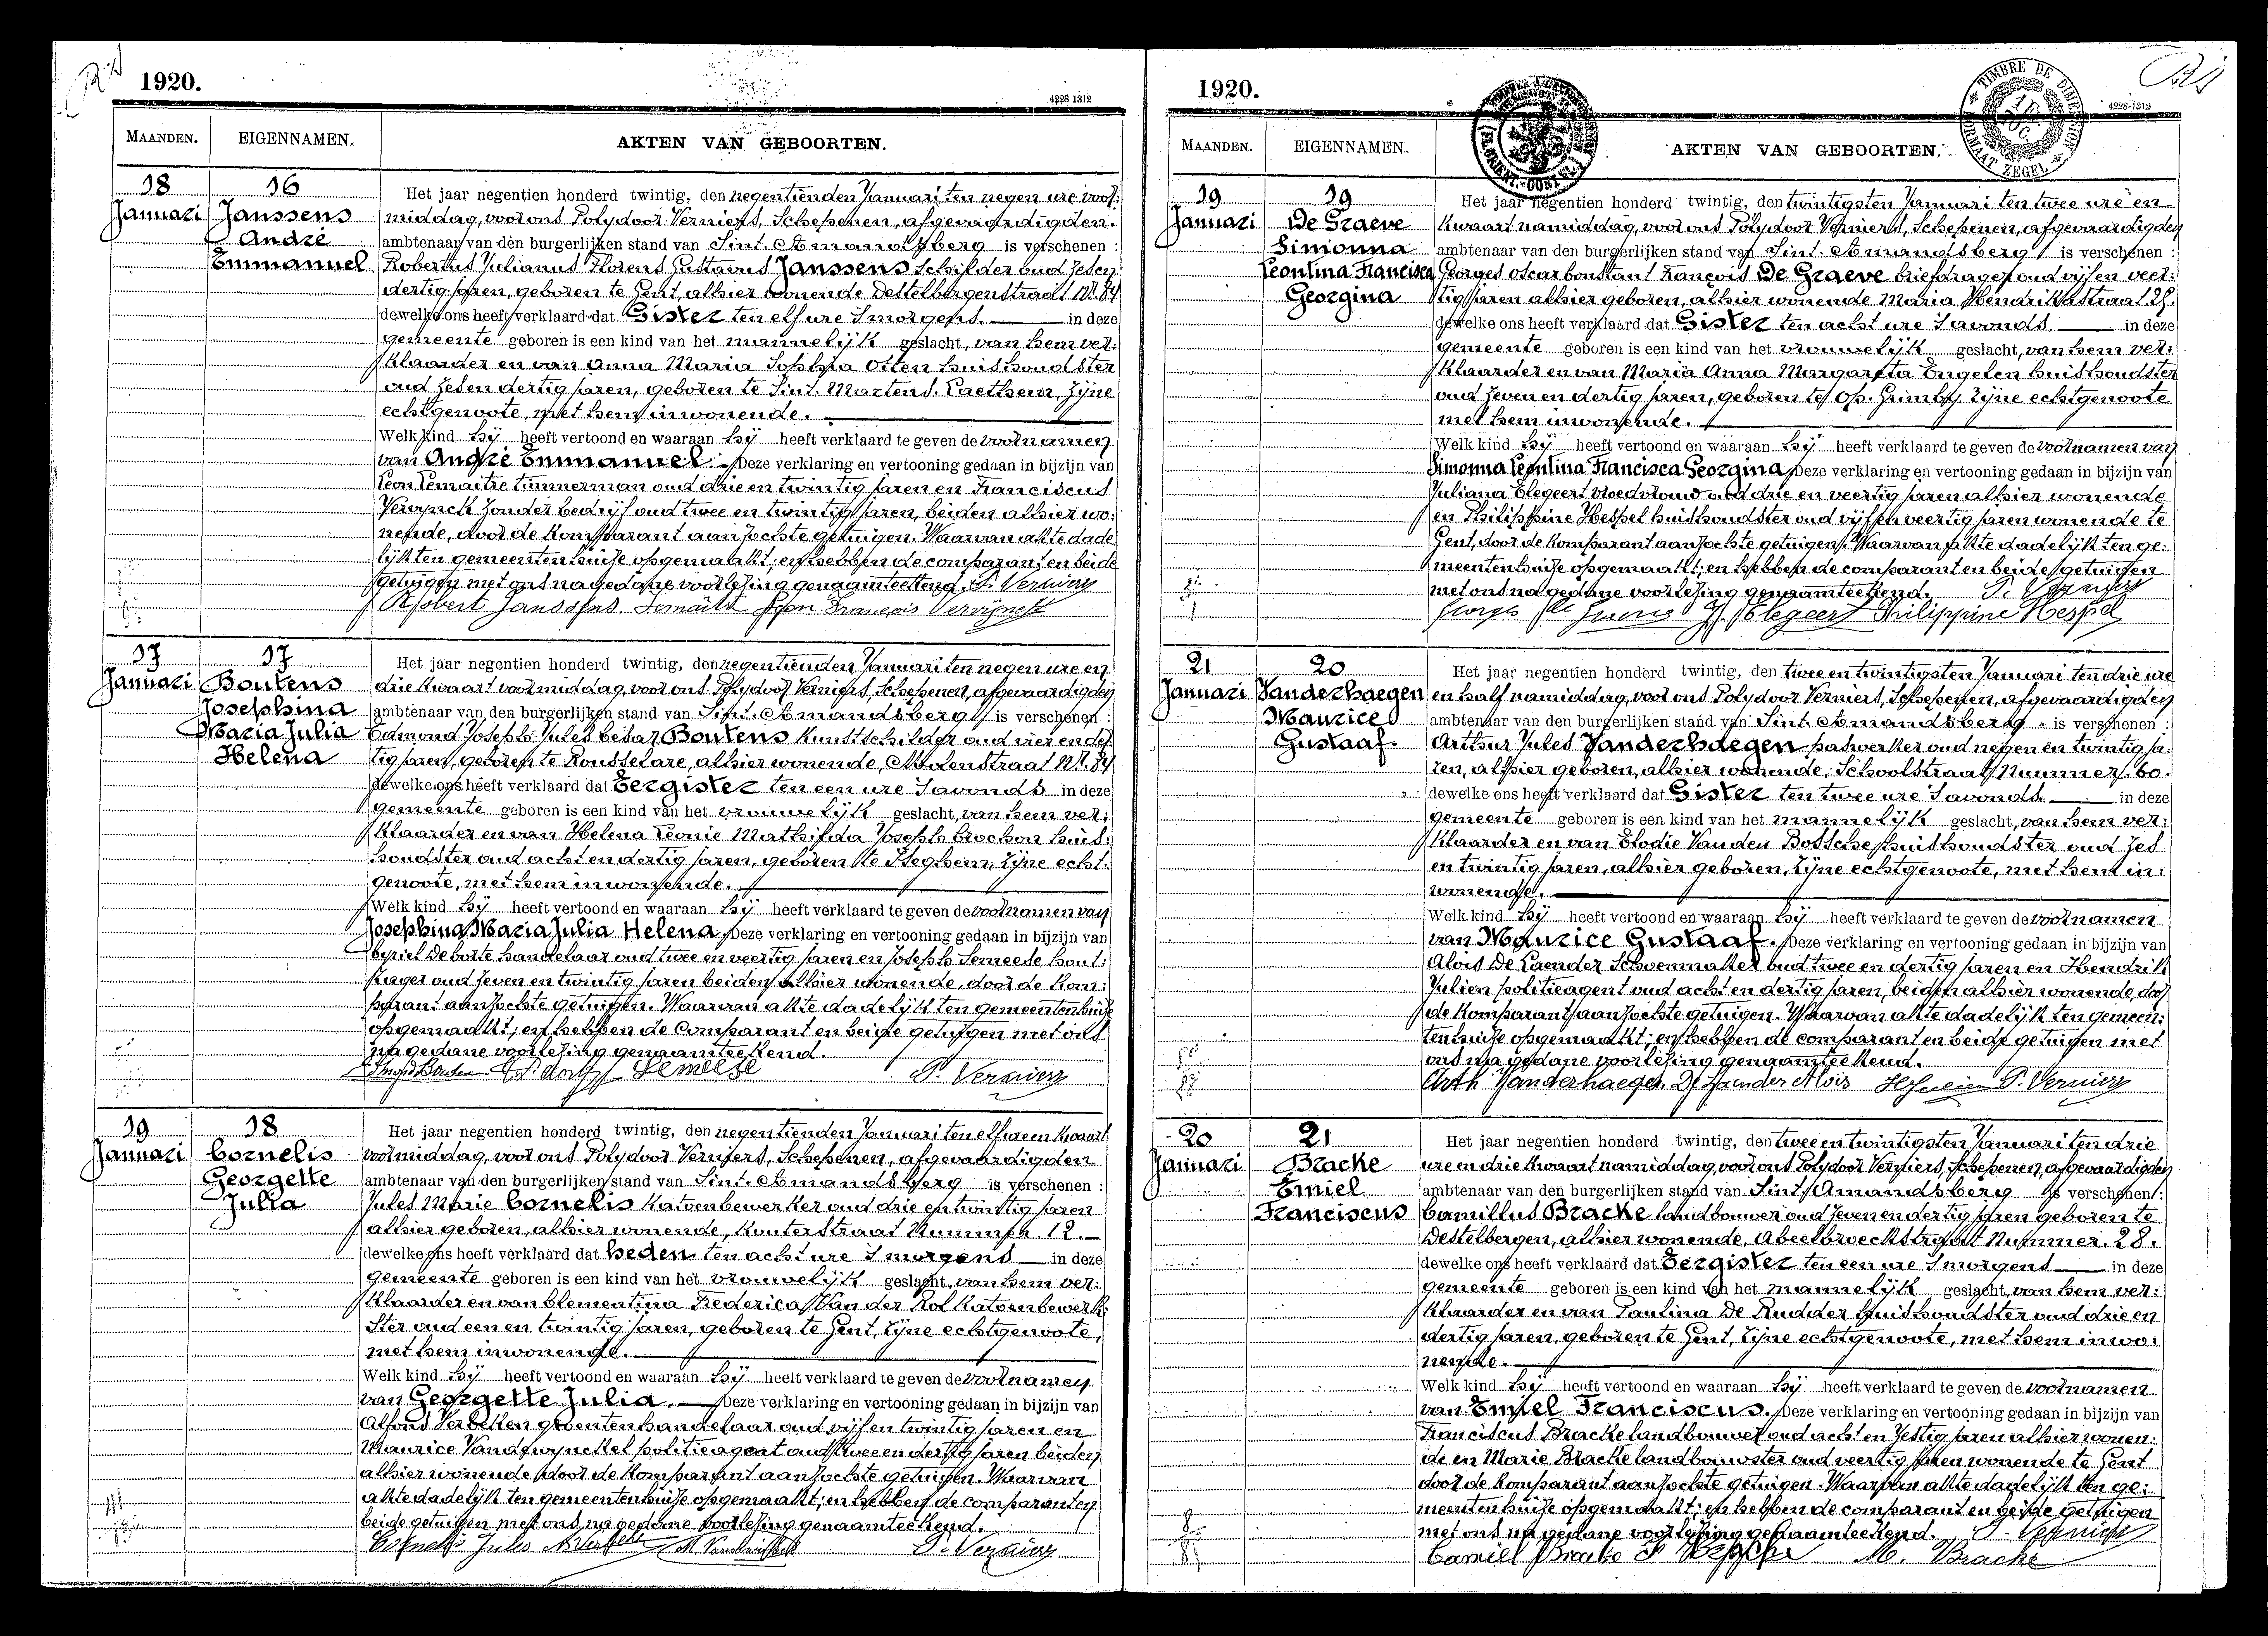 1920.
4228 1312
MAANDEN.
EIGENNAMEN.
AKTEN VAN GEBOORTEN.
18
Januari
16
Janssens
André
Emmanuel
Het jaar negentien honderd twintig, den negentienden Januari ten negen ure voor:
middag, voor ons Polydoor Verniers, Schepenen, afgevaardigden
ambtenaar van den burgerlijken stand van Sint. Amandsberg is verschenen :
Robertus Julianus Florens Gustavus Janssens Schilder oud zesen
dertig jaren, geboren te Gent, alhier wonende Destelbergenstraat Nr. 84
dewelke ons heeft verklaard dat Gister ten elf ure Smorgens. in deze
gemeente geboren is een kind van het mannelijk geslacht, van hem ver:
klaarder en van Anna Maria Sophia Otten huishoudster
oud zesen dertig jaren, geboren te Sint. Martens. Laethem, zijne
echtgenoote, met hem inwonende.
Welk kind hij heeft vertoond en waaraan hij heeft verklaard te geven de voornamen
van André Emmanuel. Deze verklaring en vertooning gedaan in bijzijn van
Leon Lemaitre timmerman oud drie en twintig jaren en Franciscus
Vervynck zonder bedrijf oud twee en twintig jaren, beiden alhier wo:
nende, door de Komparant aanzochte getuigen. Waarvan akte dade
lijk ten gemeentenhuize opgemaakt; en hebben de comparant en beide
getuigen met ons na gedane voorlezing genaamteekend. P. Verniers
Robert Janssens Lemaitre Leon François Vervynck
17
Januari
17
Boutens
Josephina
Maria Julia
Helena
Het jaar negentien honderd twintig, den negentienden Januari ten negen ure en
drie kwaart voormiddag, voor ons Polydoor Verniers, Schepenen, afgevaardigden
ambtenaar van den burgerlijken stand van Sint. Amandsberg is verschenen :
Edmond Joseph Jules Cesar Boutens Kunstschilder oud vier en der
tig jaren, geboren te Rousselare, alhier wonende, Molenstraat Nr. 84
dewelke ons heeft verklaard dat Eergister ten een ure Savonds in deze
gemeente geboren is een kind van het vrouwelijk geslacht, van hem ver:
klaarder en van Helena Leonie Mathilda Joseph Crochon huis:
houdster oud acht en dertig jaren, geboren te Iseghem, zijne echt:
genoote, met hem inwonende.
Welk kind hij heeft vertoond en waaraan hij heeft verklaard te geven de voornamen van
Josephina Maria Julia Helena. Deze verklaring en vertooning gedaan in bijzijn van
Cyriel De Corte handelaar oud twee en veertig jaren en Joseph Semeese hout:
zager oud zeven en twintig jaren beiden alhier wonende, door de Kom:
parant aanzochte getuigen. Waarvan akte dadelijk ten gemeentenhuize
opgemaakt; en hebben de Comparant en beide getuigen met ons
na gedane voorlezing genaamteekend.
Semeese P. Verniers
19
Januari
18
Cornelis
Georgette
Julia
Het jaar negentien honderd twintig, den negentienden Januari ten elf ure en kwaart
voormiddag, voor ons Polydoor Verniers, Schepenen, afgevaardigden
ambtenaar van den burgerlijken stand van Sint. Amandsberg is verschenen :
Jules Marie Cornelis Katoenbewerker oud drie en twintig jaren
alhier geboren, alhier wonende, Kouterstraat Nummer. 12.
dewelke ons heeft verklaard dat heden ten acht ure Smorgens in deze
gemeente geboren is een kind van het vrouwelijk geslacht, van hem ver:
klaarder en van Clementina Frederica Van der Rol Katoenbewerk:
ster oud een en twintig jaren, geboren te Gent, zijne echtgenoote,
met hem inwonende.
Welk kind hij heeft vertoond en waaraan hij heeft verklaard te geven de voornamen
van Georgette Julia. Deze verklaring en vertooning gedaan in bijzijn van
Alfons Verbeken groentenhandelaar oud vijf en twintig jaren en
Maurice Vandewynckel politieagent oud twee en dertig jaren beiden
alhier wonende door de Komparant aanzochte getuigen. Waarvan
akte dadelijk ten gemeentenhuize opgemaakt; en hebben de comparant en
beide getuigen met ons na gedane voorlezing genaamteekend.
Cornelis Jules P. Verniers
1920.
TIMBRE DE DIMENSION
FORMAAT ZEGEL
4228-1312
MAANDEN.
EIGENNAMEN.
AKTEN VAN GEBOORTEN.
19
Januari
19
De Graeve
Simonna
Leontina Francisca
Georgina
Het jaar negentien honderd twintig, den twintigsten Januari ten twee ure en
kwaart namiddag, voor ons Polydoor Verniers, Schepenen, afgevaardigden
ambtenaar van den burgerlijken stand van Sint. Amandsberg is verschenen :
Georges Oscar Constant François De Graeve briefdrager oud vijf en veer:
tig jaren alhier geboren, alhier wonende Maria Hendrikastraat 25.
dewelke ons heeft verklaard dat Gister ten acht ure Savonds. in deze
gemeente geboren is een kind van het vrouwelijk geslacht, van hem ver:
klaarder en van Maria Anna Margareta Engelen huishoudster
oud zeven en dertig jaren, geboren te Op. Grimby, zijne echtgenoote
met hem inwonende.
Welk kind hij heeft vertoond en waaraan hij heeft verklaard te geven de voornamen van
Simonna Leontina Francisca Georgina. Deze verklaring en vertooning gedaan in bijzijn van
Juliana Elegeert vroedvrouw oud drie en veertig jaren alhier wonende
en Philippine Hespel huishoudster oud vijf en veertig jaren wonende te
Gent, door de Komparant aanzochte getuigen. Waarvan akte dadelijk ten ge:
meentenhuize opgemaakt; en hebben de comparant en beide getuigen
met ons na gedane voorlezing genaamteekend. P. Verniers
Georges De Graeve J. Elegeert Philippine Hespel
21
Januari
20
Vanderhaegen
Maurice
Gustaaf.
Het jaar negentien honderd twintig, den twee en twintigsten Januari ten drie ure
en half namiddag, voor ons Polydoor Verniers, Schepenen, afgevaardigden
ambtenaar van den burgerlijken stand van Sint. Amandsberg is verschenen :
Arthur Jules Vanderhaegen daswerker oud negen en twintig ja:
ren, alhier geboren, alhier wonende, Schoolstraat Nummer. 60.
dewelke ons heeft verklaard dat Gister ten twee ure Savonds. in deze
gemeente geboren is een kind van het mannelijk geslacht, van hem ver:
klaarder en van Elodie Vanden Bossche huishoudster oud zes
en twintig jaren, alhier geboren, zijne echtgenoote, met hem in:
wonende.
Welk kind hij heeft vertoond en waaraan hij heeft verklaard te geven de voornamen
van Maurice Gustaaf. Deze verklaring en vertooning gedaan in bijzijn van
Alois De Laender Schoenmaker oud twee en dertig jaren en Hendrik
Julien politieagent oud acht en dertig jaren, beiden alhier wonende, door
de Komparant aanzochte getuigen. Waarvan akte dadelijk ten gemeen:
tenhuize opgemaakt; en hebben de comparant en beide getuigen met
ons na gedane voorlezing genaamteekend.
Arth Vanderhaegen. De Laender Alois P. Verniers
20
Januari
21
Bracke
Emiel
Franciscus
Het jaar negentien honderd twintig, den twee en twintigsten Januari ten drie
ure en drie kwaart namiddag, voor ons Polydoor Verniers, Schepenen, afgevaardigden
ambtenaar van den burgerlijken stand van Sint. Amandsberg is verschenen :
Camillus Bracke landbouwer oud zeven en dertig jaren geboren te
Destelbergen, alhier wonende, Abeelbroeckstraat Nummer. 28.
dewelke ons heeft verklaard dat Eergister ten een ure Smorgens in deze
gemeente geboren is een kind van het mannelijk geslacht, van hem ver:
klaarder en van Paulina De Rudder huishoudster oud drie en
dertig jaren, geboren te Gent, zijne echtgenoote, met hem inwo:
nende.
Welk kind hij heeft vertoond en waaraan hij heeft verklaard te geven de voornamen
van Emiel Franciscus. Deze verklaring en vertooning gedaan in bijzijn van
Franciscus Bracke landbouwer oud acht en zestig jaren alhier wonen:
de en Marie Bracke landbouwster oud veertig jaren wonende te Gent
door de Komparant aanzochte getuigen. Waarvan akte dadelijk ten ge:
meentenhuize opgemaakt; en hebben de comparant en beide getuigen
met ons na gedane voorlezing genaamteekend. P. Verniers
Camiel Bracke M. Bracke